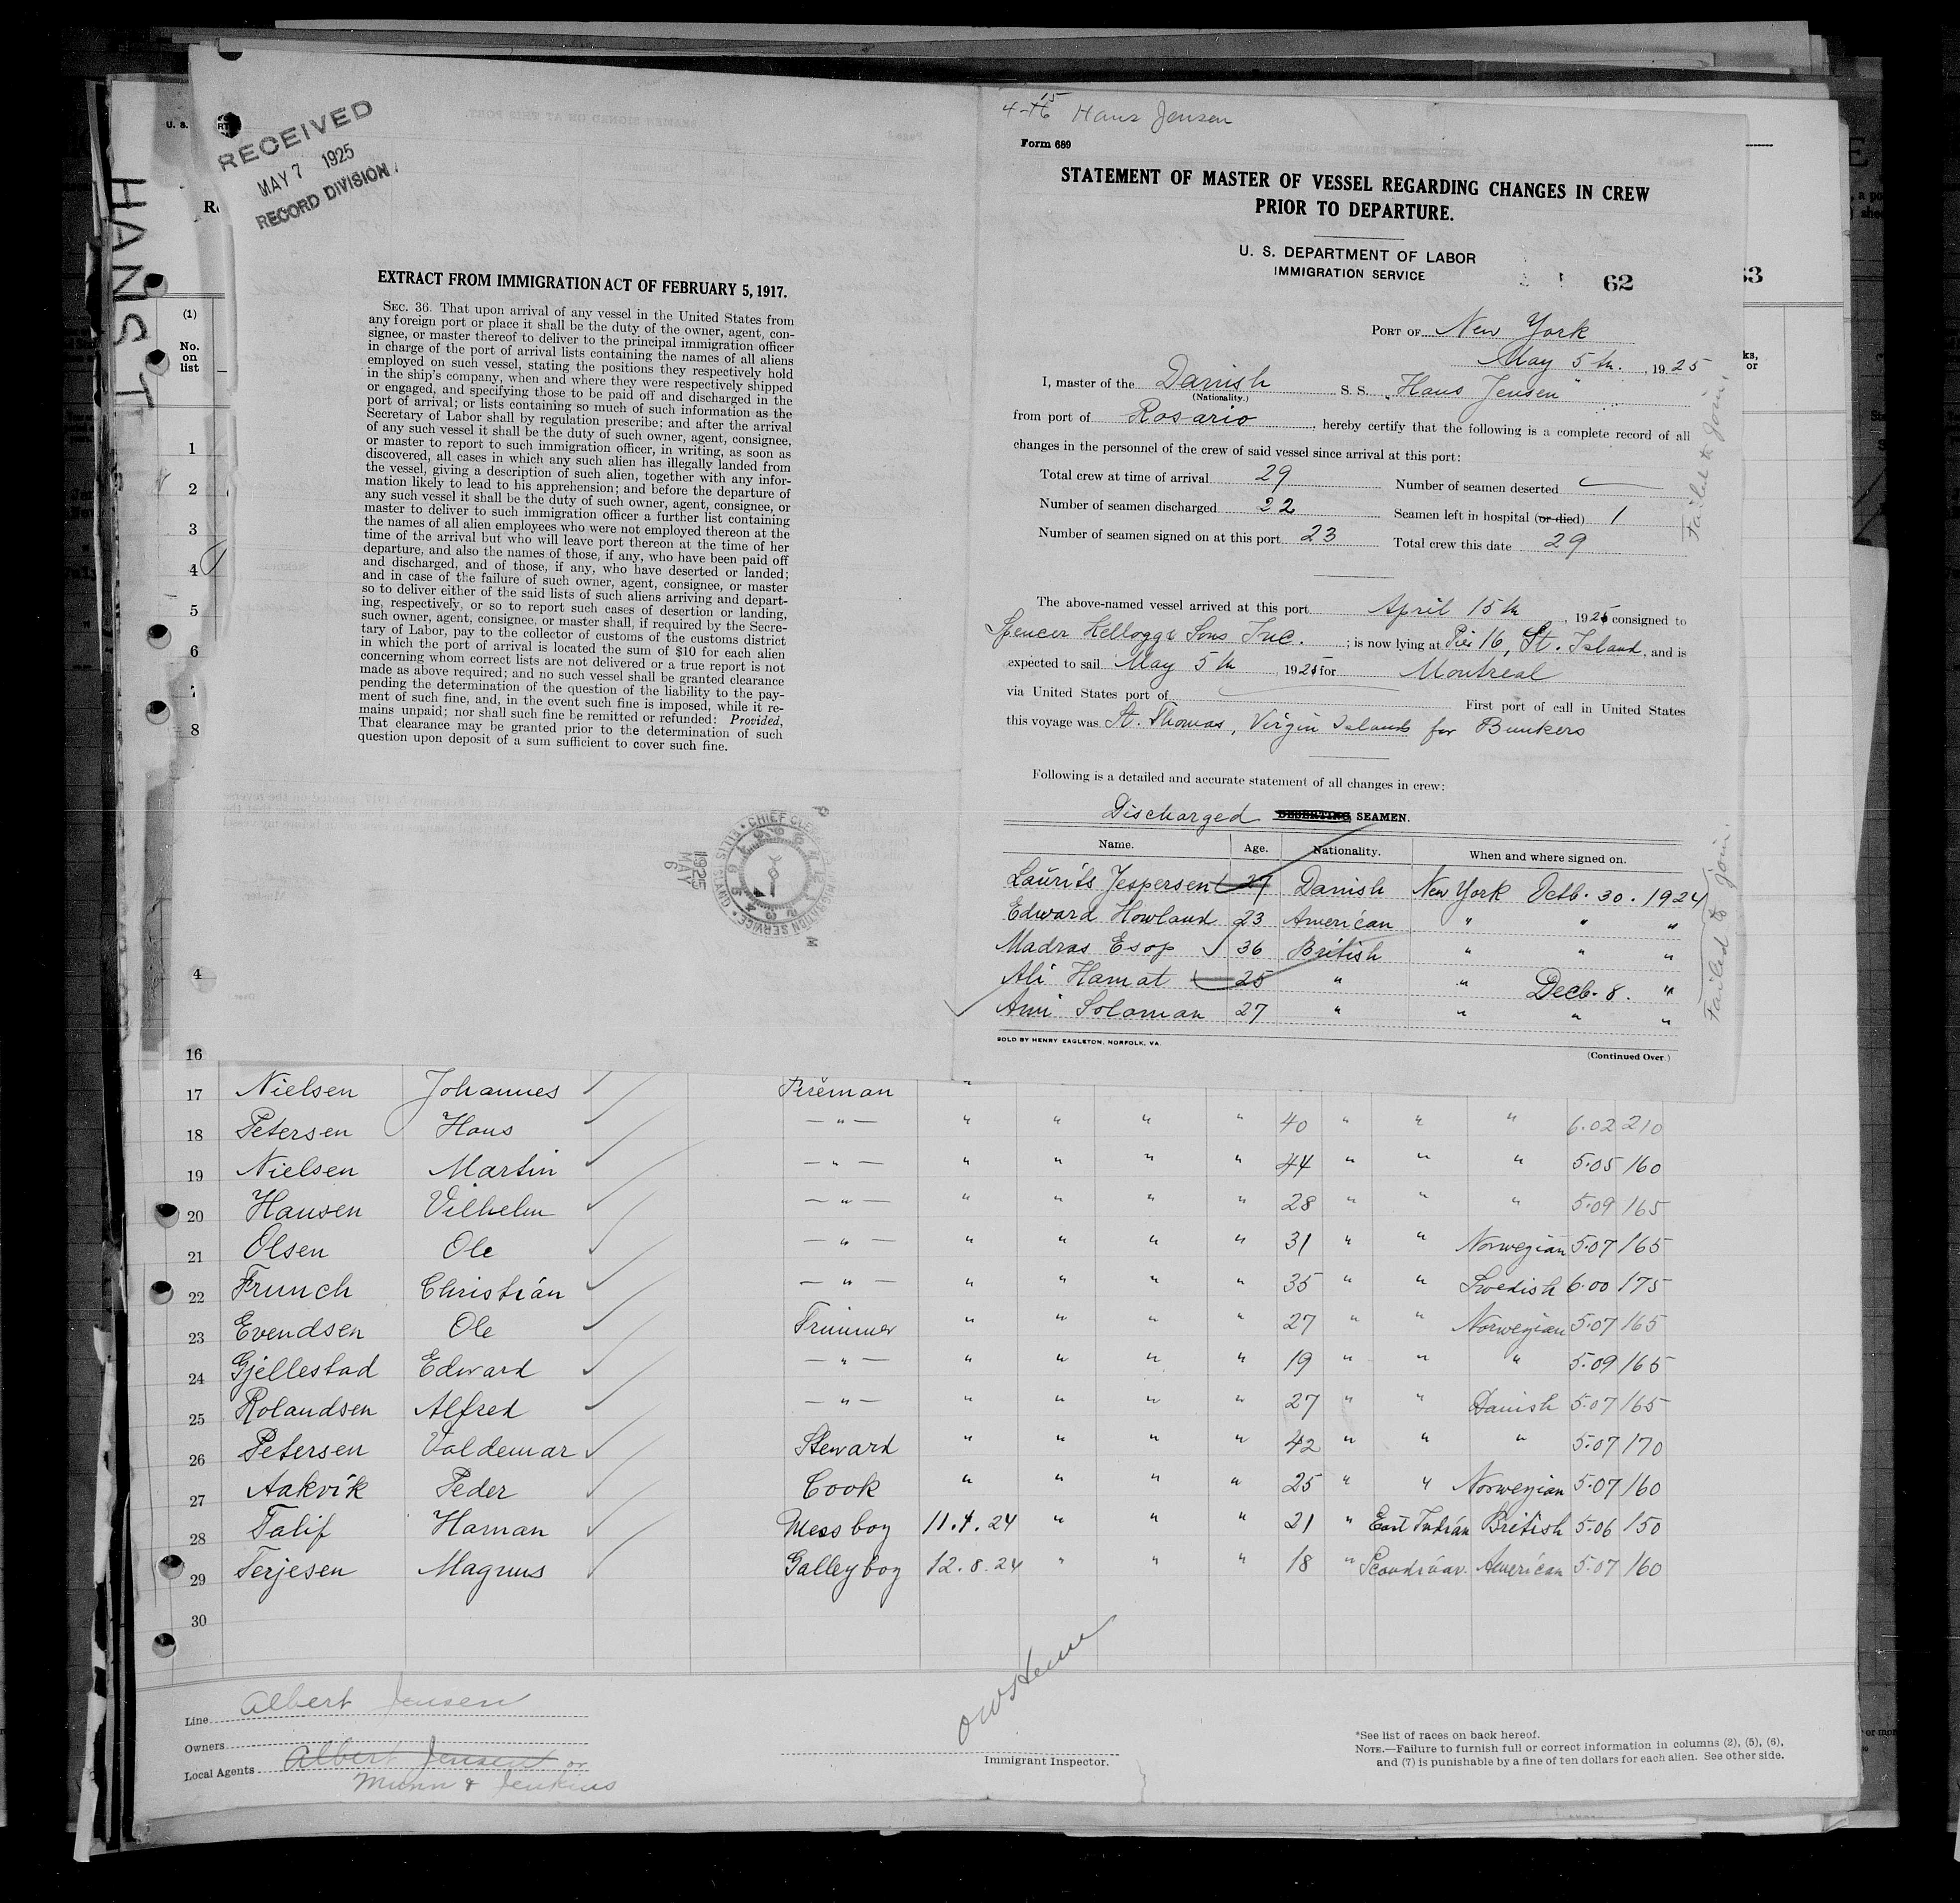 HANS J
U. S.
RECEIVED
MAY 7 1925
RECORD DIVISION
EXTRACT FROM IMMIGRATION ACT OF FEBRUARY 5, 1917.
SEC. 36. That upon arrival of any vessel in the United States from
any foreign port or place it shall be the duty of the owner, agent, con-
signee, or master thereof to deliver to the principal immigration officer
in charge of the port of arrival lists containing the names of all aliens
employed on such vessel, stating the positions they respectively hold
in the ship's company, when and where they were respectively shipped
or engaged, and specifying those to be paid off and discharged in the
port of arrival; or lists containing so much of such information as the
Secretary of Labor shall by regulation prescribe; and after the arrival
of any such vessel it shall be the duty of such owner, agent, consignee,
or master to report to such immigration officer, in writing, as soon as
discovered, all cases in which any such alien has illegally landed from
the vessel, giving a description of such alien, together with any infor-
mation likely to lead to his apprehension; and before the departure of
any such vessel it shall be the duty of such owner, agent, consignee, or
master to deliver to such immigration officer a further list containing
the names of all alien employees who were not employed thereon at the
time of the arrival but who will leave port thereon at the time of her
departure, and also the names of those, if any, who have been paid off
and discharged, and of those, if any, who have deserted or landed;
and in case of the failure of such owner, agent, consignee, or master
so to deliver either of the said lists of such aliens arriving and depart-
ing, respectively, or so to report such cases of desertion or landing,
such owner, agent, consignee, or master shall, if required by the Secre-
tary of Labor, pay to the collector of customs of the customs district
in which the port of arrival is located the sum of $10 for each alien
concerning whom correct lists are not delivered or a true report is not
made as above required; and no such vessel shall be granted clearance
pending the determination of the question of the liability to the pay-
ment of such fine, and, in the event such fine is imposed, while it re-
mains unpaid; nor shall such fine be remitted or refunded: Provided,
That clearance may be granted prior to the determination of such
question upon deposit of a sum sufficient to cover such fine.
1925
MAY
6
Hans Jensen
Form 689
STATEMENT OF MASTER OF VESSEL REGARDING CHANGES IN CREW
PRIOR TO DEPARTURE.
U. S. DEPARTMENT OF LABOR
IMMIGRATION SERVICE
62
PORT OF New York
May 5th. , 1925
I, master of the Danish S. S. "Hans Jensen"
(Nationality.)
from port of Rosario , hereby certify that the following is a complete record of all
changes in the personnel of the crew of said vessel since arrival at this port:
Total crew at time of arrival 29 Number of seamen deserted
Number of seamen discharged 22 Seamen left in hospital (or died) 1
Number of seamen signed on at this port 23 Total crew this date 29
Failed to join.
The above-named vessel arrived at this port April 15th , 1925 consigned to
Spencer Kellogg & Sons Inc. ; is now lying at Pier 16, St. Island , and is
expected to sail May 5th , 1925 for Montreal
via United States port of First port of call in United States
this voyage was St. Thomas, Virgin Islands for Bunkers
Following is a detailed and accurate statement of all changes in crew:
Discharged DESERTING SEAMEN.
Name. Age. Nationality. When and where signed on.
Laurits Jespersen 27 Danish New York Octb. 30. 1924
Edward Howland 23 American " " "
Madras Esop 36 British " " "
Ali Hamat 25 " " Decb. 8. "
Ami Soloman 27 " " " "
Failed to join.
SOLD BY HENRY EAGLETON, NORFOLK, VA.
(Continued Over.)
(1)
No.
on
list
1
2
3
4
5
6
7
8
4
16
17 Nielsen Johannes Fireman "
18 Petersen Hans — " — " " " " 40 " " " 6.02 210
19 Nielsen Martin — " — " " " " 44 " " " 5.05 160
20 Hansen Vilhelm — " — " " " " 28 " " " 5.09 165
21 Olsen Ole — " — " " " " 31 " " Norwegian 5.07 165
22 Frunch Christian — " — " " " " 35 " " Swedish 6.00 175
23 Evendsen Ole Trimmer " " " " 27 " " Norwegian 5.07 165
24 Gjellestad Edward — " — " " " " 19 " " " 5.09 165
25 Rolandsen Alfred — " — " " " " 27 " " Danish 5.07 165
26 Petersen Valdemar Steward " " " " 42 " " " 5.07 170
27 Aakvik Peder Cook " " " " 25 " " Norwegian 5.07 160
28 Talif Haman Mess boy 11.4.24 " " " 21 " East Indian British 5.06 150
29 Terjesen Magnus Galley boy 12.8.24 " " " 18 " Scandinav. American 5.07 160
30
Line Albert Jensen
Owners
Local Agents Albert Jensen or
Munn & Jenkins
Immigrant Inspector.
*See list of races on back hereof.
NOTE.—Failure to furnish full or correct information in columns (2), (5), (6),
and (7) is punishable by a fine of ten dollars for each alien. See other side.